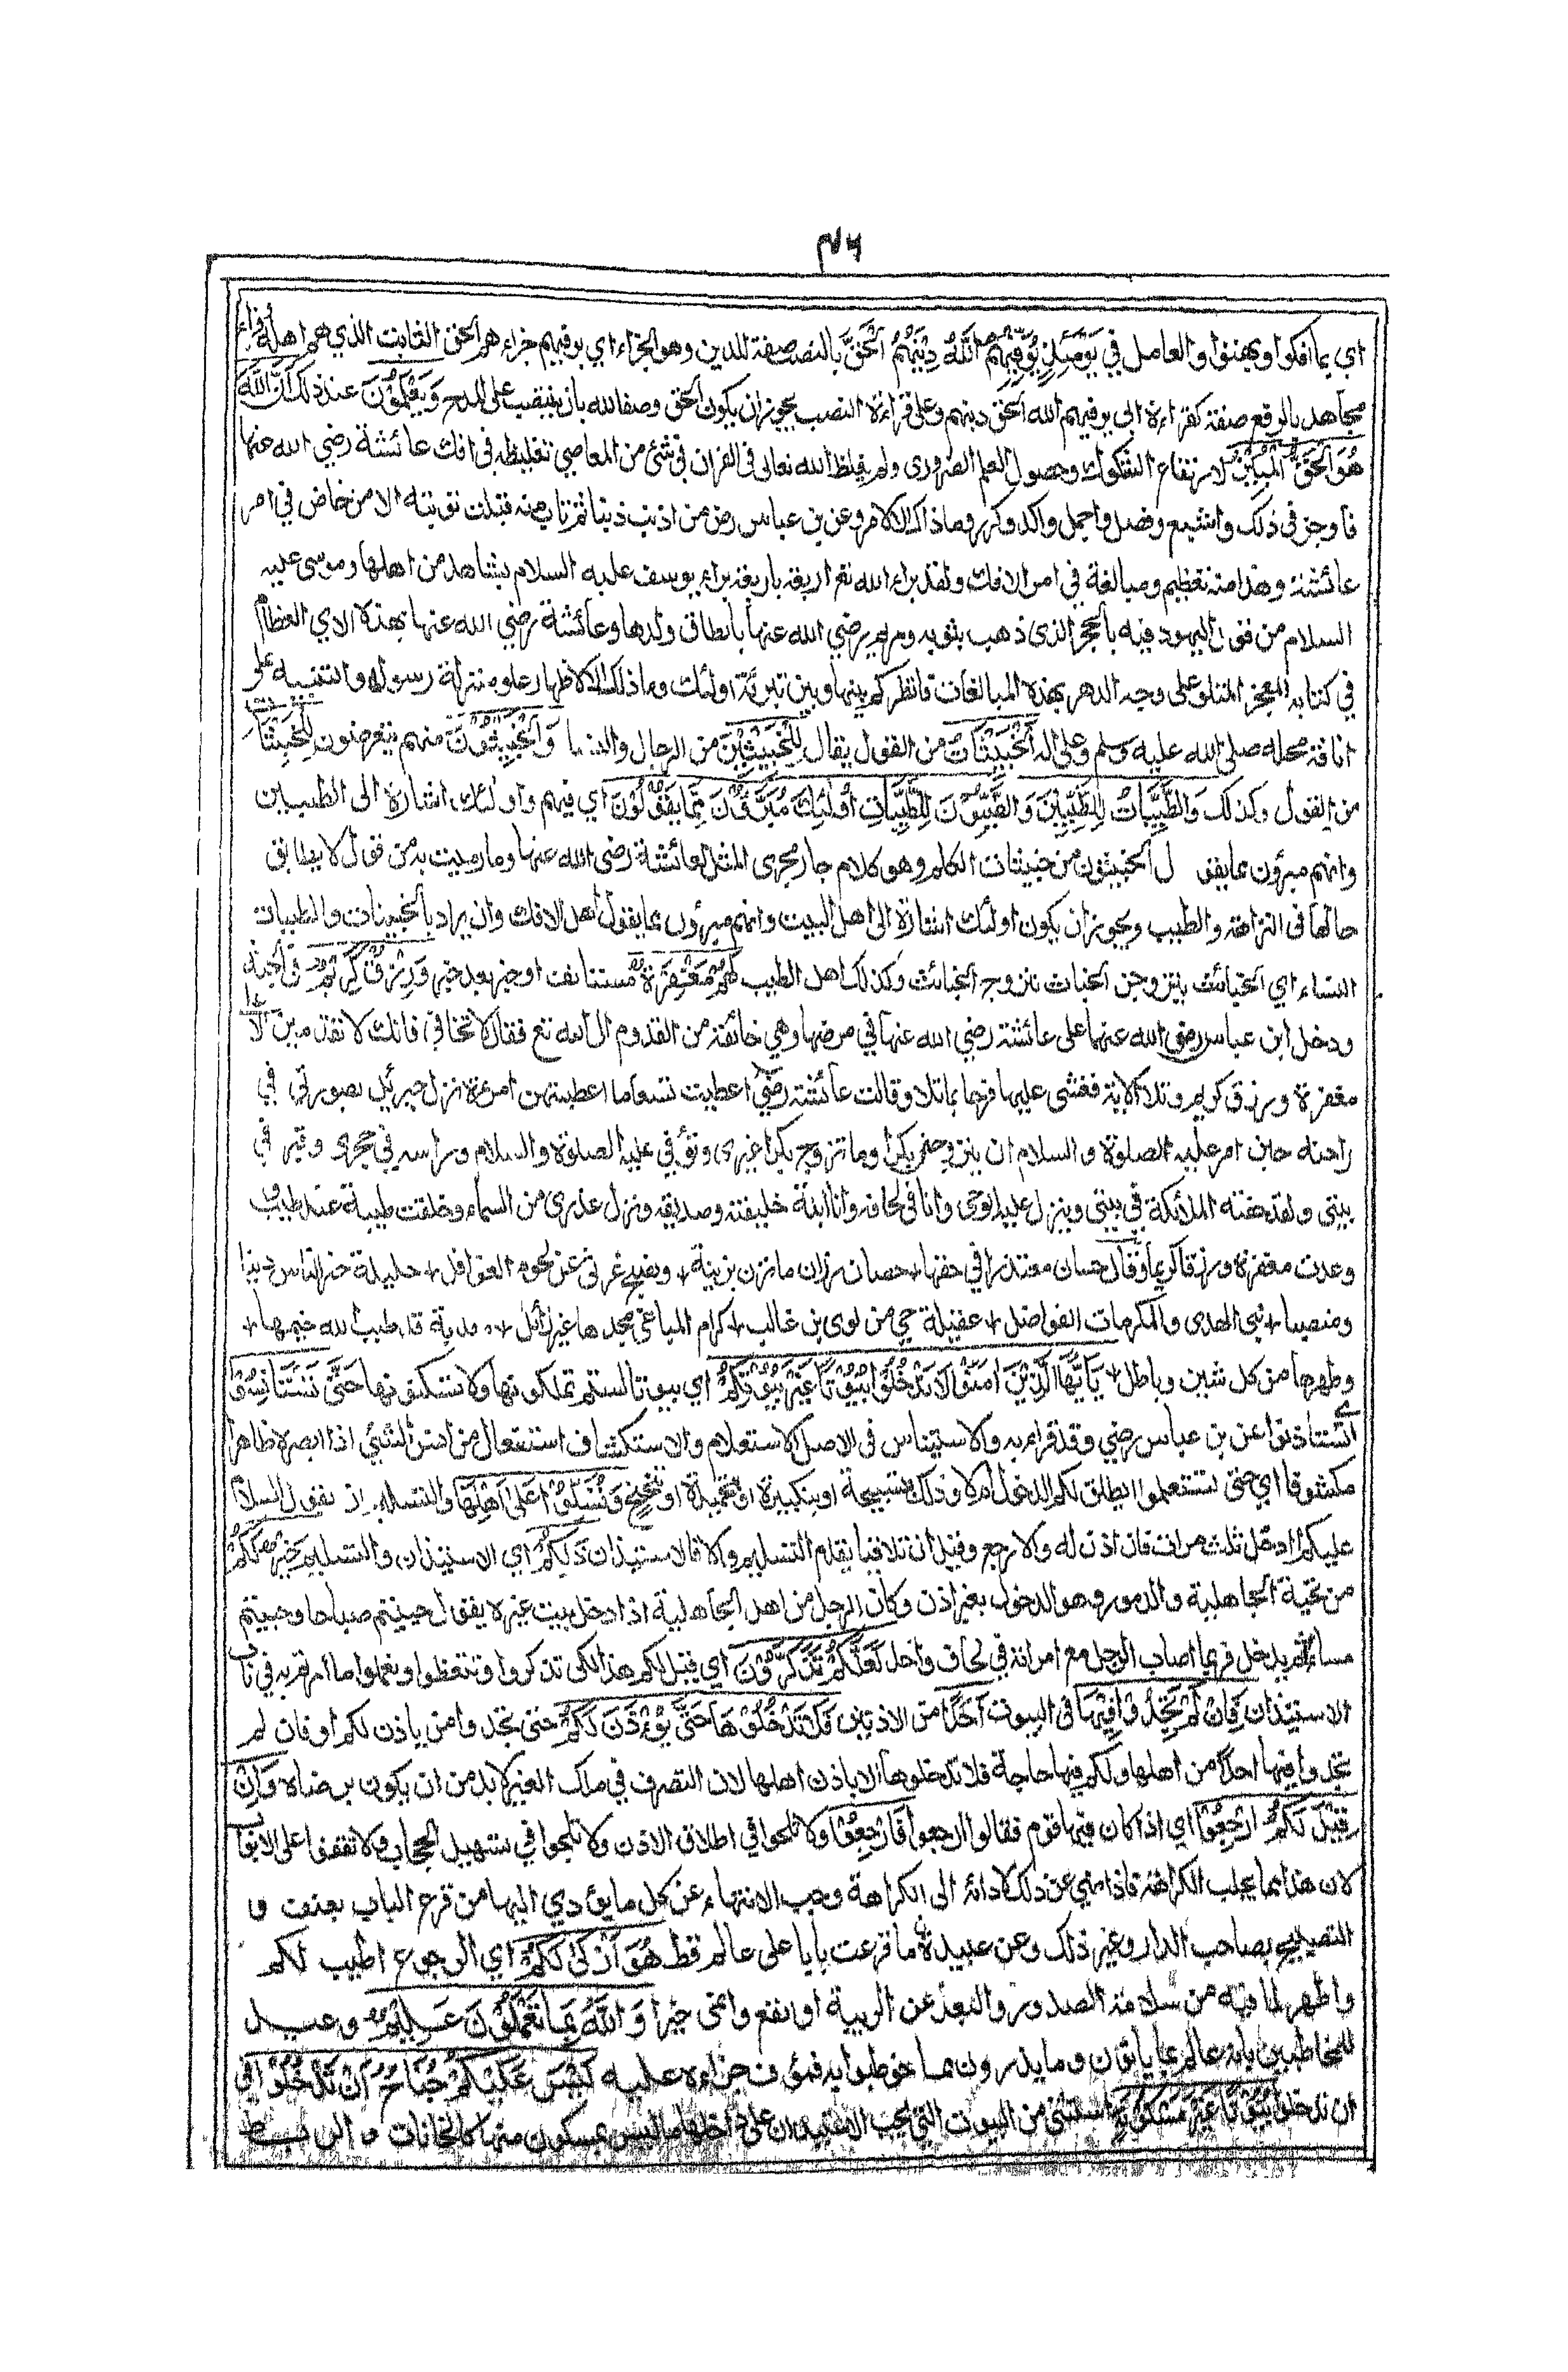 ٧٦
اي بما افكوا وبهتوا والعامل في يَوْمَئِذٍ يُوَفِّيهِمُ اللّٰهُ دِيْنَهُمُ الْحَقَّ بالنصب صفة للدين وهو الجزاء اي يوفيهم جزاءهم الحق الثابت الذي هم اهله قراء
مجاهد بالرفع صفة كقراءة ابي يوفيهم الله الحق دينهم وعلى قراءة النصب يجوز ان يكون الحق وصفا لله بان ينتصب على المدح وَيَعْلَمُوْنَ عند ذلك اَنَّ اللّٰهَ
هُوَ الْحَقُّ الْمُبِيْنُ لارتفاع الشكوك وحصول العلم الضروري ولم يغلظ الله تعالى في القران في شئ من المعاصي تغليظه في افك عائشة رضي الله عنها
فاوجز في ذلك واشبع وفصل واجمل واكد وكرر وما ذاك الا لامر وعن بن عباس رض من اذنب ذنبا ثم تاب منه قبلت توبته الا من خاض في امر
عائشة وهذا منه تعظيم ومبالغة في امر الافك ولقد براء الله تع اربعة باربعة براء يوسف عليه السلام بشاهد من اهلها وموسى عليه
السلام من قول اليهود فيه بالحجر الذى ذهب بثوبه ومريم رضي الله عنها بانطاق ولدها وعائشة رضي الله عنها بهذه الاي العظام
في كتابه المعجز المتلو على وجه الدهر بهذه المبالغات فانظر كم بينها وبين تبرئة اولئك وما ذلك الا لاظهار علو منزلة رسوله والتنبيه على
انافة محله صلى الله عليه وسلم وعلى اله اَلْخَبِيْثَاتُ من القول يقال لِلْخَبِيْثِيْنَ من الرجال والنسا وَالْخَبِيْثُوْنَ منهم يتعرضون لِلْخَبِيْثَاتِ
من القول وكذلك وَالطَّيِّبَاتُ لِلطَّيِّبِيْنَ وَالطَّيِّبُوْنَ لِلطَّيِّبَاتِ اُولٰئِكَ مُبَرَّءُوْنَ مِمَّا يَقُوْلُوْنَ اي فيهم واولئك اشارة الى الطيبين
وانهم مبرؤن مما يقول الخبيثون من خبيثات الكلم وهو كلام جار مجرى المثل لعائشة رضى الله عنها وما رميت به من قول لا يطابق
حالها في النزاهة والطيب ويجوز ان يكون اولئك اشارة الى اهل البيت وانهم مبرؤن مما يقول اهل الافك وان يراد بالخبيثات والطيبات
النساء اي الخبائث يتزوجن الخباث تتزوج الخبائث وكذلك اهل الطيب لَهُمْ مَغْفِرَةٌ مستانف او خبر بعد خبر وَرِزْقٌ كَرِيْمٌ في الجنة
ودخل ابن عباس رضى الله عنهما على عائشة رضي الله عنها في مرضها وهي خائفة من القدوم الى الله تع فقال لا تخافي فانك لا تقدمين الا على
مغفرة ورزق كريم وتلا الاية فغشى عليها فرحا بما تلا وقالت عائشة رضي اعطيت تسعا ما اعطيتهن امرءة نزل جبرئيل بصورتي في
راحته حين امر عليه الصلوة والسلام ان يتزوجني بكرا وما تزوج بكرا غيرى وتوفي عليه الصلوة والسلام وراسه في حجرى وقبر في
بيتى ولقد حفته الملائكة في بيتى وينزل عليه الوحى وانا في لحافه وانا ابنة خليفته وصديقه ونزل عذرى من السماء وخلقت طيبة عند طيب
وعدت مغفرة ورزقا كريما وقال حسان معتذرا في حقها حصان رزان ما تزن بريبة وتصبح غرثى عن لحوم الغوافل حليلة خير الناس دينا
ومنصبا نبي الهدى والمكرمات الفواضل عقيلة حي من لوى بن غالب كرام المساعى مجدها غير زائل مهذبة قد طيب الله خيمها
وطهرها من كل شين وباطل يٰاَيُّهَا الَّذِيْنَ اٰمَنُوْا لَا تَدْخُلُوْا بُيُوْتًا غَيْرَ بُيُوْتِكُمْ اي بيوتا لستم تملكونها ولا تسكنونها حَتّٰى تَسْتَانِسُوْا
اي تستاذنوا عن بن عباس رضي وقد قراء به والاستيناس في الاصل الاستعلام والاستكشاف استفعال من انس الشئي اذا ابصره ظاهرا
مكشوفا اي حتى تستعلموا ايطلق لكم الدخول ام لا وذلك بتسبيحة او بتكبيرة او بتحميدة او تنحنح وَتُسَلِّمُوْا عَلٰى اَهْلِهَا والتسليم ان يقول السلام
عليكم اادخل ثلث مرات فان اذن له والا رجع وقيل ان تلاقيا يقدم التسليم والا فالاستيذان ذٰلِكُمْ اي الاستيذان والتسليم خَيْرٌ لَكُمْ
من تحية الجاهلية والدمور وهو الدخول بغير اذن وكان الرجل من اهل الجاهلية اذا دخل بيت غيره يقول حييتم صباحا وحييتم
مساء ثم يدخل فربما اصاب الرجل مع امراته في لحاف واحد لَعَلَّكُمْ تَذَكَّرُوْنَ اي قيل لكم هذا لكى تذكروا وتتعظوا وتعملوا ما امرتم به في باب
الاستيذان فَاِنْ لَمْ تَجِدُوْا فِيْهَا في البيوت اَحَدًا من الاذنين فَلَا تَدْخُلُوْهَا حَتّٰى يُؤْذَنَ لَكُمْ حتى تجدوا من ياذن لكم او فان لم
تجدوا فيها احدا من اهلها ولكم فيها حاجة فلا تدخلوها الا باذن اهلها لان التصرف في ملك الغير لا بد من ان يكون برضاه وَاِنْ
قِيْلَ لَكُمُ ارْجِعُوْا اي اذا كان فيها قوم فقالوا ارجعوا فَارْجِعُوْا ولا تلحوا في اطلاق الاذن ولا تلجوا في تسهيل الحجاب ولا تقفوا على الابواب
لان هذا مما يجلب الكراهة فاذا نهي عن ذلك لادائه الى الكراهة وجب الانتهاء عن كل ما يؤدي اليها من قرع الباب بعنف و
التصييح بصاحب الدار وغير ذلك وعن عبيدة ما قرعت بابا على عالم قط هُوَ اَزْكٰى لَكُمْ اي الرجوع اطيب لكم
واطهر لما فيه من سلامة الصدور والبعد عن الريبة او انفع وانمى خيرا وَاللّٰهُ بِمَا تَعْمَلُوْنَ عَلِيْمٌ وعيد
للمخاطبين بانه عالم بما ياتون وما يذرون مما خوطبوا به فموف جزاءه عليه لَيْسَ عَلَيْكُمْ جُنَاحٌ اَنْ تَدْخُلُوْا في
ان تدخلوا بُيُوْتًا غَيْرَ مَسْكُوْنَةٍ استثنى من البيوت التي يجب الاستيذان على داخلها ما ليس بمسكون منها كالخانات والربط